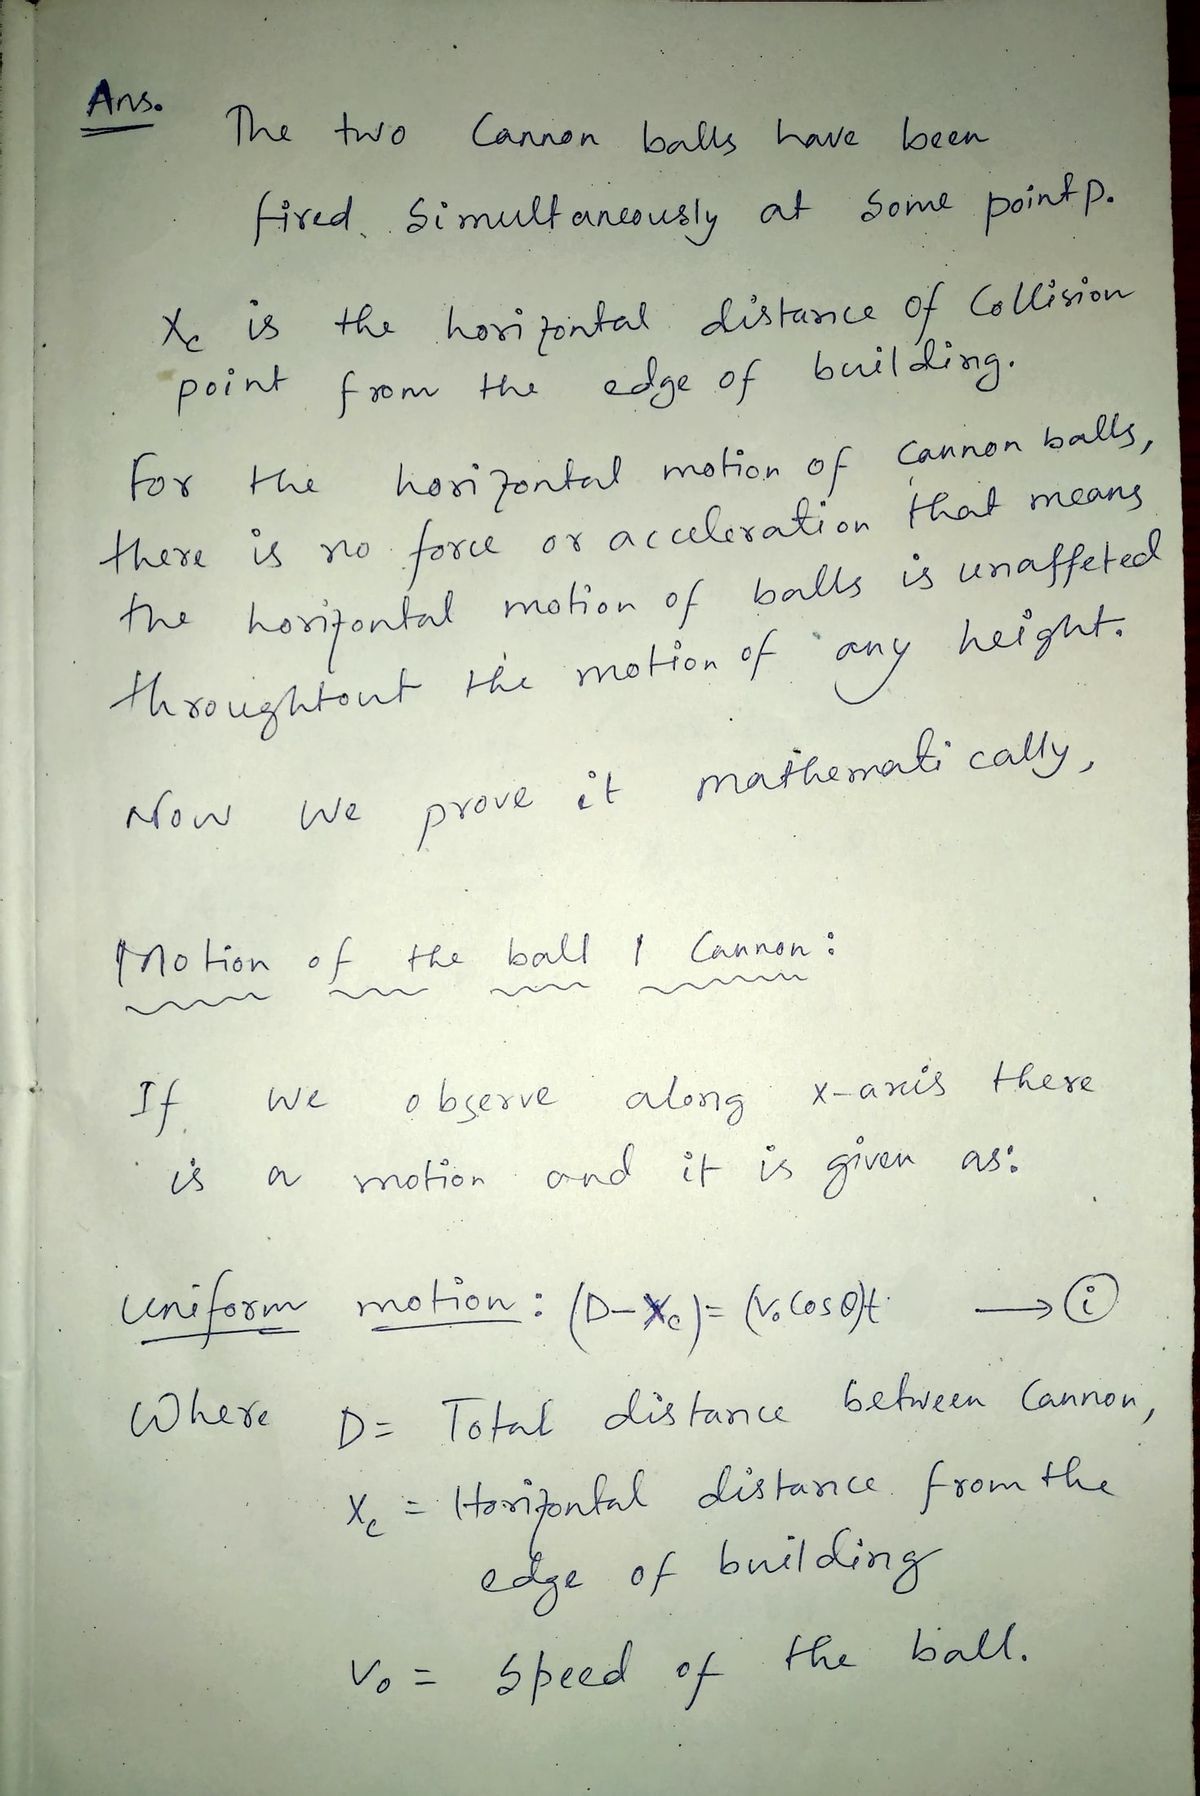 Ans.
The two Cannon balls have been
fired simultaneously at some point P.
Xc is the horizontal distance of Collision
point from the edge of building.
For the horizontal motion of cannon balls,
there is no force or acceleration that means
the horizontal motion of balls is unaffeted
throughtout the motion of any height.
Now we prove it mathematically,
Motion of the ball 1 Cannon:
If we observe along x-axis there
is a motion and it is given as:
Uniform motion: (D-Xc) = (V₀ Cos θ)t → (i)
Where D = Total distance between Cannon,
Xc = Horizontal distance from the
edge of building
V₀ = Speed of the ball.